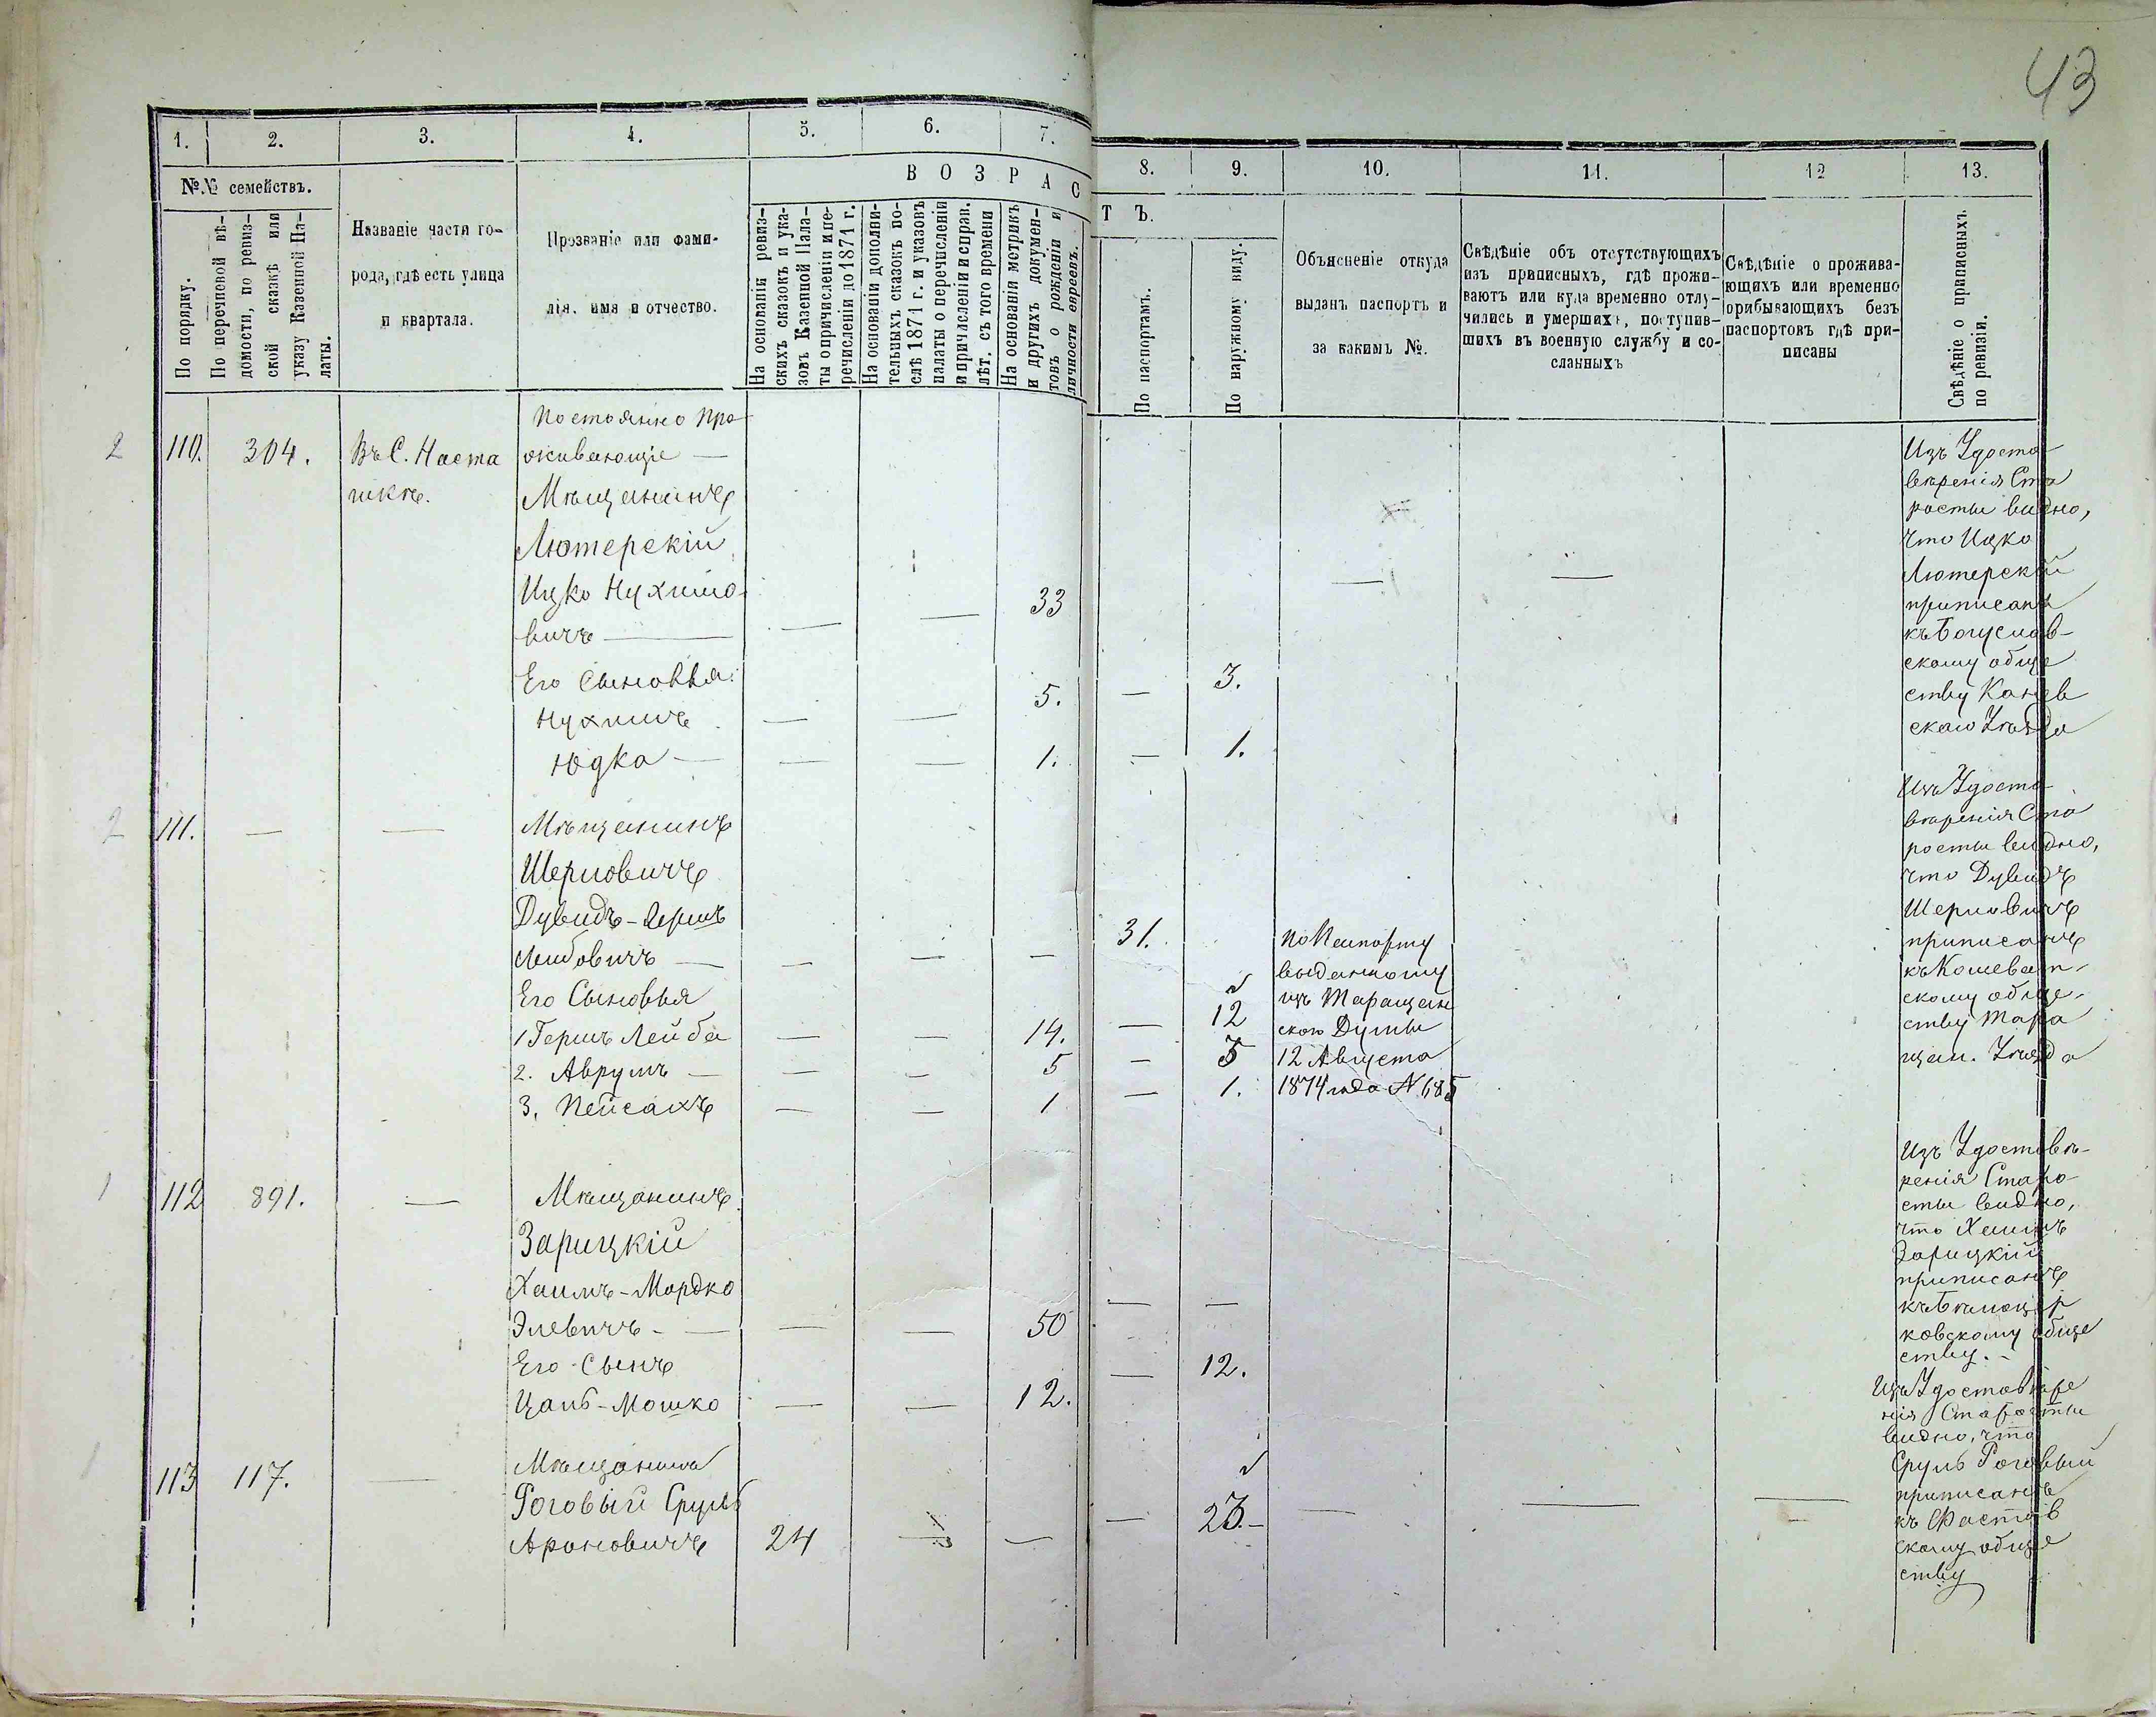 43
1.
2.
3.
4.
5.
6.
7.
8.
9.
10.
11.
12
13.
№№ семействъ.
По порядку.
По перечневой вѣ-
домости, по ревиз-
ской сказкѣ или
указу Казенной Па-
латы.
Названіе части го-
рода, гдѣ есть улица
и квартала.
Прозваніе или фами-
лія, имя и отчество.
ВОЗРАС
ТЪ.
На основаніи ревиз-
скихъ сказокъ и ука-
зовъ Казенной Пала-
ты о причисленіи и пе-
речисленіи до 1871 г.
На основаніи дополни-
тельныхъ сказокъ по-
слѣ 1871 г. и указовъ
палаты о перечисленіи
и причисленіи и справ.
лѣт. съ того времени
На основаніи метрикъ
и другихъ докумен-
товъ о рожденіи и
личности евреевъ.
По паспортамъ.
По наружному виду.
Объясненіе откуда
выданъ паспортъ и
за какимъ №.
Свѣдѣніе объ отсутствующихъ
изъ приписныхъ, гдѣ прожи-
ваютъ или куда временно отлу-
чились и умершихъ, поступив-
шихъ въ военную службу и со-
сланныхъ
Свѣдѣніе о прожива-
ющихъ или временно
прибывающихъ безъ
паспортовъ гдѣ при-
писаны
Свѣдѣніе о приписныхъ
по ревизіи.
2
110.
304.
Въ С. Наста
шкѣ.
Постоянно про
живающіе —
Мѣщанинъ
Лютерскій
Ицко Нухимо-
вичъ — — — 33
Его Сыновья:
Нухимъ — — 5. — 3.
Юдка — — — 1. — 1.
Изъ Удосто-
вѣренія Ста
росты видно,
что Ицко
Лютерскій
приписанъ
къ Богуслав-
скому обще
ству Канев
скаго Уѣзда
2
111.
—
—
Мѣщанинъ
Шерновичъ
Дувидъ-Гершъ
Лейбовичъ — — — — 31.
Его Сыновья
1 Гершъ Лейба — — 14. — 12
2. Аврумъ — — — 5 — 3
3. Пейсахъ — — 1 — 1.
По Паспорту
выданному
изъ Таращан
ской Думы
12 Августа
1874 года № 685
Изъ Удосто-
вѣренія Ста
росты видно,
что Дувидъ
Шерновичъ
приписанъ
къ Кошеват-
скому обще-
ству Тара
щан. Уѣзда
1
112
891.
—
Мѣщанинъ
Зарицкій
Хаимъ-Мордко
Элевичъ — — — 50 — —
Его Сынъ
Цаль-Мошко — — 12. — 12.
Изъ Удостовѣ-
ренія Старо
сты видно,
что Хаимъ
Зарицкій
приписанъ
къ Бѣлоцер
ковскому обще
ству. —
1
113
117.
—
Мѣщанинъ
Роговый Сруль
Ароновичъ 24 — — — 23. — — — —
Изъ Удостовѣре
нія Старосты
видно, что
Сруль Роговый
приписанъ
къ Фастов
скому обще
ству